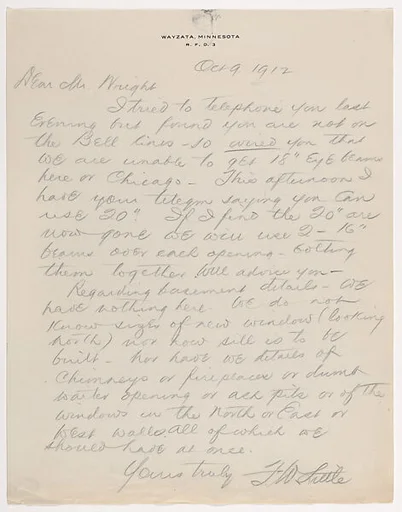 WAYZATA, MINNESOTA
R. F. D. 3
Oct 9 1912
Dear Mr. Wright
I tried to telephone you last
Evening but found you are not on
the Bell lines - so wired you that
we are unable to get 18" Eye beams
here or Chicago - This afternoon I
have your telegm saying you can
use 20". If I find the 20" are
now gone we will use 2 - 16"
beams over each opening - bolting
them together Will advise you -
Regarding basement details - we
have nothing here. We do not
Know sizes of new window (looking
north) nor how sill is to be
built - nor have we details of
Chimneys or fireplaces or dumb
waiter opening or ash pits or of the
windows in the North or East or
West walls. All of which we
should have at once.
Yours truly FW Little